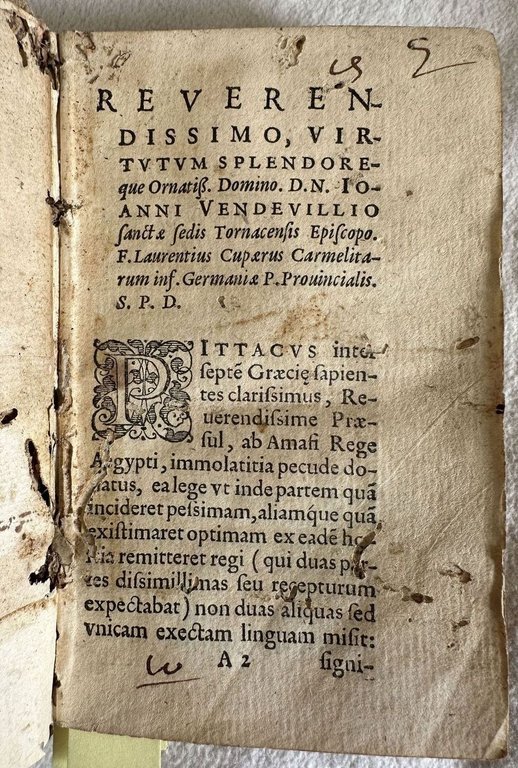 REVEREN-
DISSIMO, VIR-
TVTVM SPLENDORE-
que Ornatiß. Domino. D.N. IO-
ANNI VENDEVILLIO
sanctæ sedis Tornacensis Episcopo.
F. Laurentius Cupærus Carmelita-
rum inf. Germaniæ P. Prouincialis.
S. P. D.
PITTACVS inter
septē Græcię sapien-
tes clarissimus, Re-
uerendissime Præ-
sul, ab Amasi Rege
Aegypti, immolatitia pecude do-
natus, ea lege vt inde partem quā
incideret pessimam, aliamq́ue quā
existimaret optimam ex eadē ho-
stia remitteret regi (qui duas par-
tes dissimillimas seu recepturum
expectabat) non duas aliquas sed
vnicam exectam linguam misit:
A 2 signi-